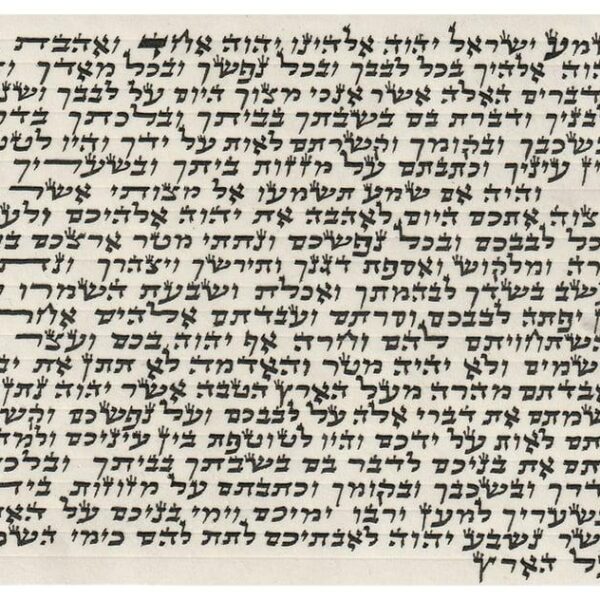 שמע ישראל יהוה אלהינו יהוה אחד ואהבת
הוה אלהיך בכל לבבך ובכל נפשך ובכל מאדך וה
דברים האלה אשר אנכי מצוך היום על לבבך ושננ
לבניך ודברת בם בשבתך בביתך ובלכתך בדר
בשכבך ובקומך וקשרתם לאות על ידך והיו לטט
ין עיניך וכתבתם על מזזות ביתך ובשעריך
והיה אם שמע תשמעו אל מצותי אשר
צוה אתכם היום לאהבה את יהוה אלהיכם ולע
כל לבבכם ובכל נפשכם ונתתי מטר ארצכם בע
רה ומלקוש ואספת דגנך ותירשך ויצהרך ונת
שב בשדך לבהמתך ואכלת ושבעת השמרו ל
ן יפתה לבבכם וסרתם ועבדתם אלהים אחר
השתחויתם להם וחרה אף יהוה בכם ועצר
שמים ולא יהיה מטר והאדמה לא תתן את יב
אבדתם מהרה מעל הארץ הטבה אשר יהוה נתן
שמתם את דברי אלה על לבבכם ועל נפשכם וקש
תם לאות על ידכם והיו לטוטפת בין עיניכם ולמד
תם את בניכם לדבר בם בשבתך בביתך ובלכ
דרך ובשכבך ובקומך וכתבתם על מזוזות בית
בשעריך למען ירבו ימיכם וימי בניכם על האד
שר נשבע יהוה לאבתיכם לתת להם כימי השמ
ל הארץ